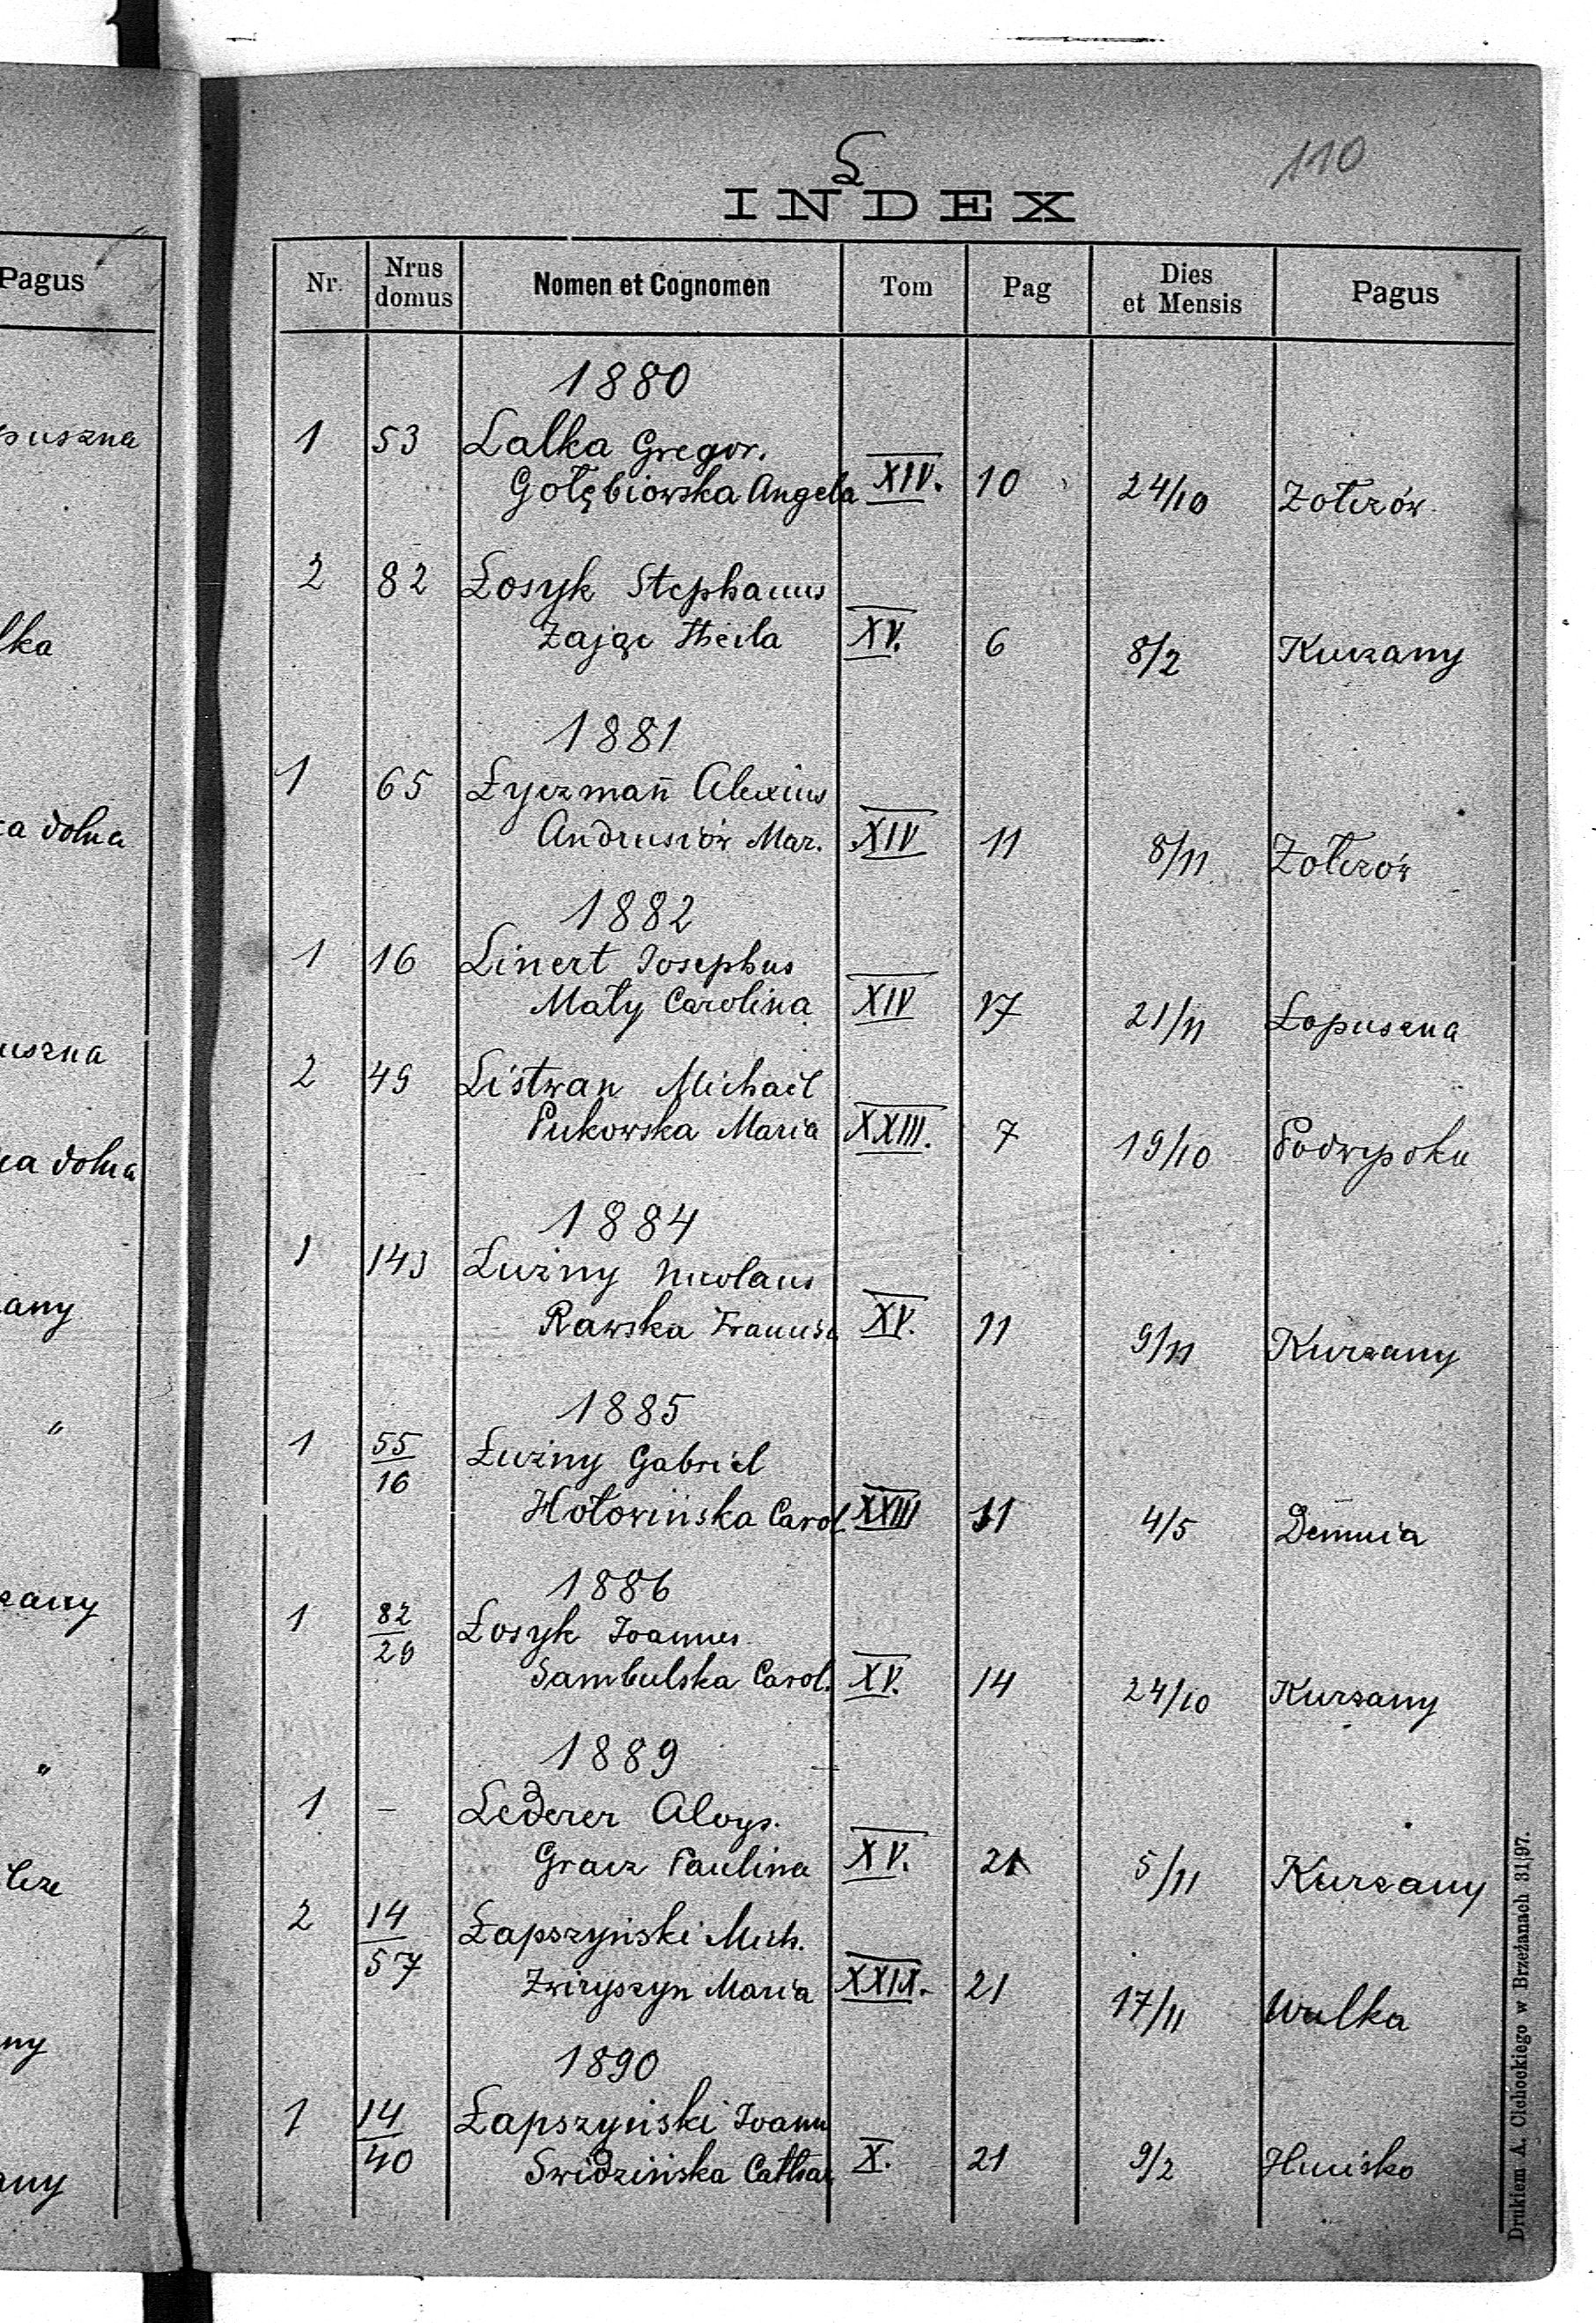 Pagus
puszna
lka
ca dolna
uszna
ca dolna
any
"
zany
"
cze
ny
any
110
L
INDEX
Nr. Nrus domus Nomen et Cognomen Tom Pag Dies et Mensis Pagus
1880
1 53 Lalka Gregor.
Gołębiowska Angela XIV. 10 24/10 Zołczów
2 82 Łosyk Stephanus
Zając Thecla XV. 6 8/2 Kurzany
1881
1 65 Łyczmań Alexius
Andrusiów Mar. XIV 11 8/11 Zołczów
1882
1 16 Linert Josephus
Mały Carolina XIV 17 21/11 Łopuszna
2 49 Listwan Michael
Pukowska Maria XXIII. 7 19/10 Podwysoku
1884
1 143 Łuźny Nicolaus
Rawska Francisc XV. 11 9/11 Kurzany
1885
1 55/16 Łuźny Gabriel
Hołowińska Carol. XXIII 11 4/5 Demnia
1886
1 82/20 Łosyk Joannes
Sambulska Carol. XV. 14 24/10 Kurzany
1889
1 – Lederer Aloys.
Gracz Paulina XV. 21 5/11 Kurzany
2 14/57 Łapszyński Mich.
Zwiryszyn Maria 21 17/11 Wulka
1890
1 14/40 Łapszyński Joann
Swidzińska Cathar X. 21 9/2 Hucisko
Drukiem A. Cichockiego w Brzeżanach 31|97.